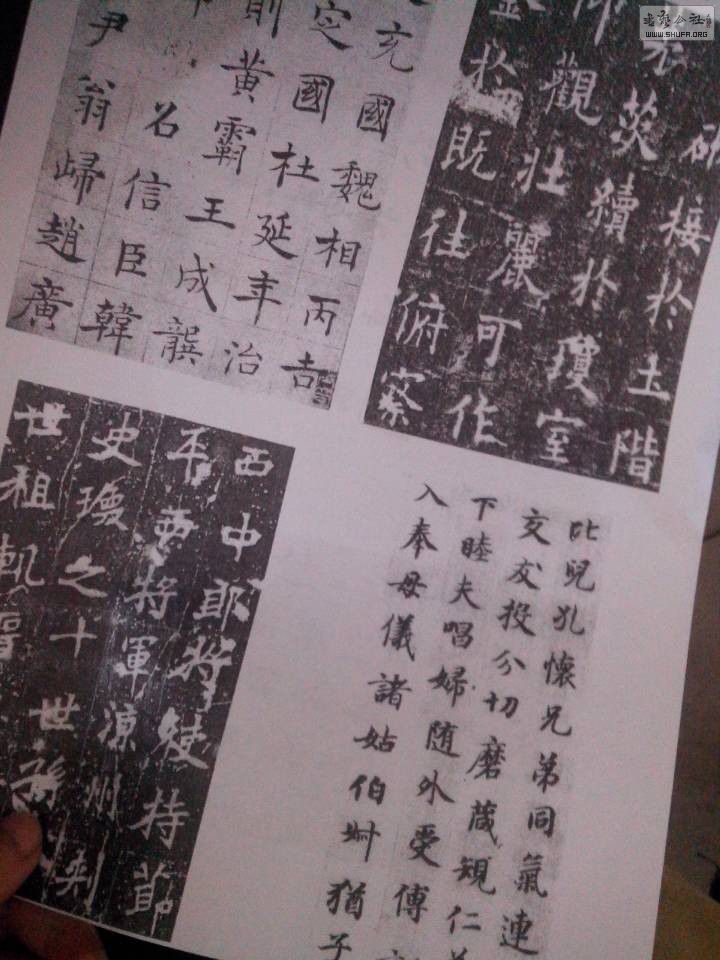 書藝公社
WWW.SHUFA.ORG
充國魏相丙吉
定國杜延年治
則黃霸王成龔
名信臣韓
尹翁歸趙廣
斫接於土階
茨續於瓊室
仰觀壯麗可作
於既往俯察
西中郎將使持節
平西將軍涼州刺
史瓌之十世孫
世祖軌晉
比兒孔懷兄弟同氣連
交友投分切磨葴規仁
下睦夫唱婦随外受傅
入奉母儀諸姑伯叔猶子